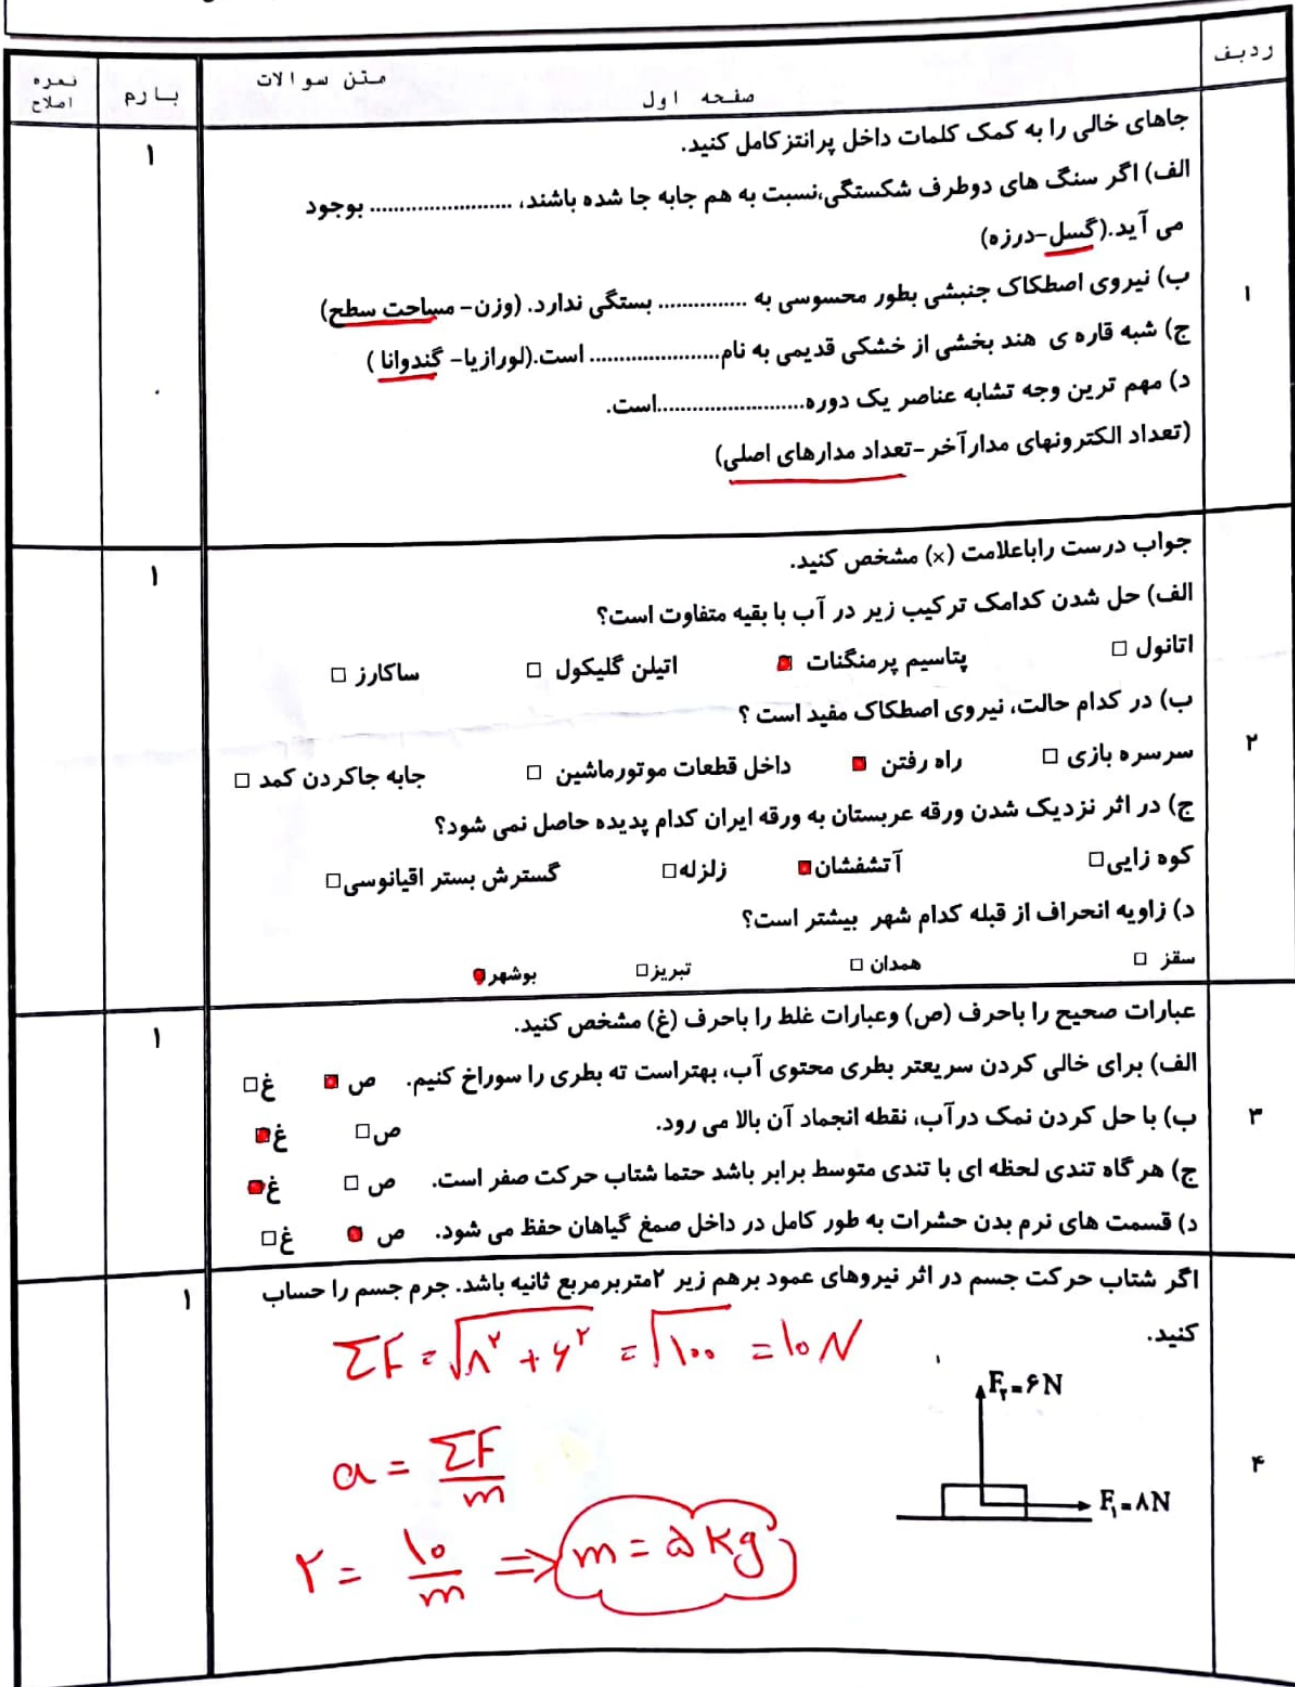 ردیف
متن سوالات
صفحه اول
بارم
نمره اصلاح
۱
جاهای خالی را به کمک کلمات داخل پرانتز کامل کنید.
الف) اگر سنگ های دوطرف شکستگی،نسبت به هم جابه جا شده باشند، ........................ بوجود
می آید.(گسل-درزه)
ب) نیروی اصطکاک جنبشی بطور محسوسی به ............... بستگی ندارد. (وزن- مساحت سطح)
ج) شبه قاره ی هند بخشی از خشکی قدیمی به نام...................... است.(لورازیا- گندوانا )
د) مهم ترین وجه تشابه عناصر یک دوره.........................است.
(تعداد الکترونهای مدارآخر-تعداد مدارهای اصلی)
۱
۲
جواب درست راباعلامت (×) مشخص کنید.
الف) حل شدن کدامک ترکیب زیر در آب با بقیه متفاوت است؟
اتانول □ پتاسیم پرمنگنات □ اتیلن گلیکول □ ساکارز □
ب) در کدام حالت، نیروی اصطکاک مفید است ؟
سرسره بازی □ راه رفتن □ داخل قطعات موتورماشین □ جابه جاکردن کمد □
ج) در اثر نزدیک شدن ورقه عربستان به ورقه ایران کدام پدیده حاصل نمی شود؟
کوه زایی□ آتشفشان□ زلزله□ گسترش بستر اقیانوسی□
د) زاویه انحراف از قبله کدام شهر بیشتر است؟
سقز □ همدان □ تبریز□ بوشهر□
۱
۳
عبارات صحیح را باحرف (ص) وعبارات غلط را باحرف (غ) مشخص کنید.
الف) برای خالی کردن سریعتر بطری محتوی آب، بهتراست ته بطری را سوراخ کنیم. ص □ غ□
ب) با حل کردن نمک درآب، نقطه انجماد آن بالا می رود. ص□ غ□
ج) هرگاه تندی لحظه ای با تندی متوسط برابر باشد حتما شتاب حرکت صفر است. ص □ غ□
د) قسمت های نرم بدن حشرات به طور کامل در داخل صمغ گیاهان حفظ می شود. ص □ غ□
۱
۴
اگر شتاب حرکت جسم در اثر نیروهای عمود برهم زیر ۲متربرمربع ثانیه باشد. جرم جسم را حساب
کنید.
۱
ΣF = √۸² + ۶² = √۱۰۰ = ۱۰ N
F₂=۶N
a = ΣF/m
F₁=۸N
۲ = ۱۰/m ⇒ m = ۵ kg